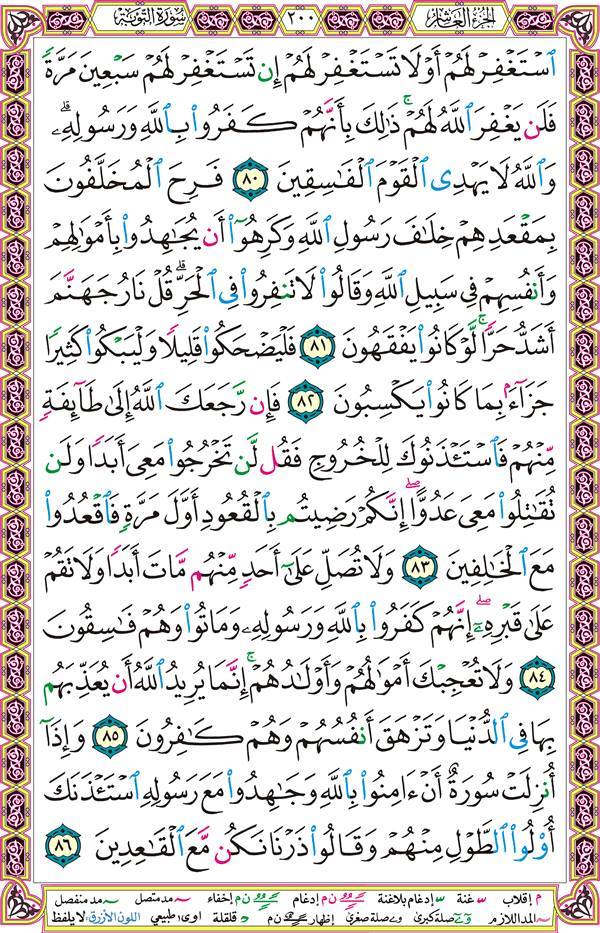 الجزء العاشر ٢٠٠ سورة التوبة
ٱسۡتَغۡفِرۡ لَهُمۡ أَوۡ لَا تَسۡتَغۡفِرۡ لَهُمۡ إِن تَسۡتَغۡفِرۡ لَهُمۡ سَبۡعِينَ مَرَّةٗ
فَلَن يَغۡفِرَ ٱللَّهُ لَهُمۡۚ ذَٰلِكَ بِأَنَّهُمۡ كَفَرُواْ بِٱللَّهِ وَرَسُولِهِۦۗ
وَٱللَّهُ لَا يَهۡدِي ٱلۡقَوۡمَ ٱلۡفَٰسِقِينَ ٨٠ فَرِحَ ٱلۡمُخَلَّفُونَ
بِمَقۡعَدِهِمۡ خِلَٰفَ رَسُولِ ٱللَّهِ وَكَرِهُوٓاْ أَن يُجَٰهِدُواْ بِأَمۡوَٰلِهِمۡ
وَأَنفُسِهِمۡ فِي سَبِيلِ ٱللَّهِ وَقَالُواْ لَا تَنفِرُواْ فِي ٱلۡحَرِّۗ قُلۡ نَارُ جَهَنَّمَ
أَشَدُّ حَرّٗاۚ لَّوۡ كَانُواْ يَفۡقَهُونَ ٨١ فَلۡيَضۡحَكُواْ قَلِيلٗا وَلۡيَبۡكُواْ كَثِيرٗا
جَزَآءَۢ بِمَا كَانُواْ يَكۡسِبُونَ ٨٢ فَإِن رَّجَعَكَ ٱللَّهُ إِلَىٰ طَآئِفَةٖ
مِّنۡهُمۡ فَٱسۡتَـٔۡذَنُوكَ لِلۡخُرُوجِ فَقُل لَّن تَخۡرُجُواْ مَعِيَ أَبَدٗا وَلَن
تُقَٰتِلُواْ مَعِيَ عَدُوًّاۖ إِنَّكُمۡ رَضِيتُم بِٱلۡقُعُودِ أَوَّلَ مَرَّةٖ فَٱقۡعُدُواْ
مَعَ ٱلۡخَٰلِفِينَ ٨٣ وَلَا تُصَلِّ عَلَىٰٓ أَحَدٖ مِّنۡهُم مَّاتَ أَبَدٗا وَلَا تَقُمۡ
عَلَىٰ قَبۡرِهِۦٓۖ إِنَّهُمۡ كَفَرُواْ بِٱللَّهِ وَرَسُولِهِۦ وَمَاتُواْ وَهُمۡ فَٰسِقُونَ
٨٤ وَلَا تُعۡجِبۡكَ أَمۡوَٰلُهُمۡ وَأَوۡلَٰدُهُمۡۚ إِنَّمَا يُرِيدُ ٱللَّهُ أَن يُعَذِّبَهُم
بِهَا فِي ٱلدُّنۡيَا وَتَزۡهَقَ أَنفُسُهُمۡ وَهُمۡ كَٰفِرُونَ ٨٥ وَإِذَآ
أُنزِلَتۡ سُورَةٌ أَنۡ ءَامِنُواْ بِٱللَّهِ وَجَٰهِدُواْ مَعَ رَسُولِهِ ٱسۡتَـٔۡذَنَكَ
أُوْلُواْ ٱلطَّوۡلِ مِنۡهُمۡ وَقَالُواْ ذَرۡنَا نَكُن مَّعَ ٱلۡقَٰعِدِينَ ٨٦
م إقلاب س غنة س إدغام بلاغنة ن م إدغام ن م إخفاء ~ مد متصل ~ مد منفصل
~ المد اللازم و ے صلة كبرى و ے صلة صغرى إظهار ن م د قلقلة اوى/ طبيعي اللون الأزرق: لا يلفظ